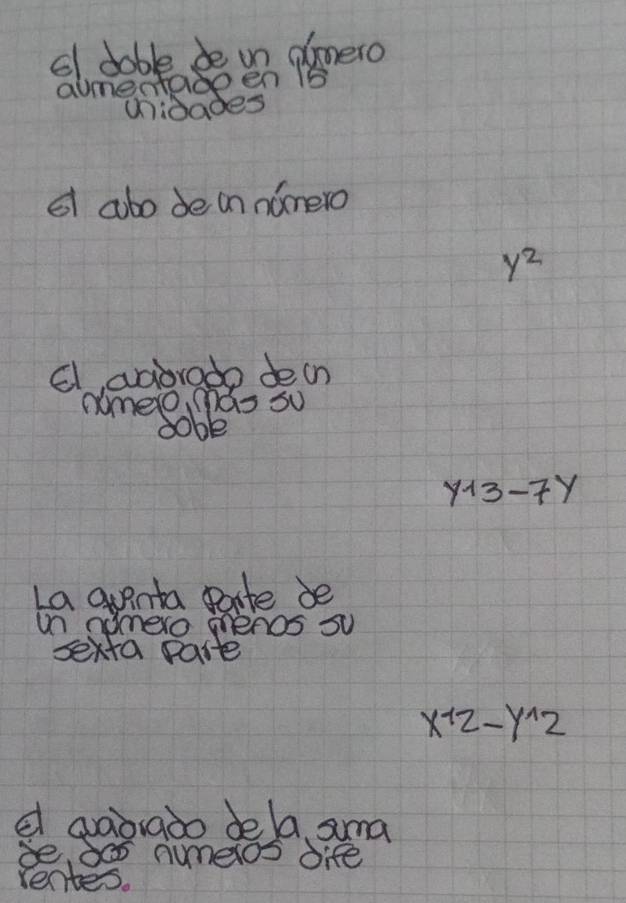 el doble de un número
aumentado en 15
unidades
el cubo de un número
y²
el cuadrado de un
número, más su
doble
y^3-7y
La quinta parte de
un número menos su
sexta parte
x^2-y^2
el cuadrado de la suma
de dos numeros dife
rentes.